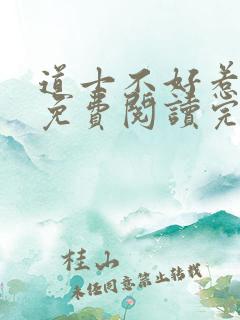 道士不好惹
免費閱讀完
桂山
未经同意禁止转载